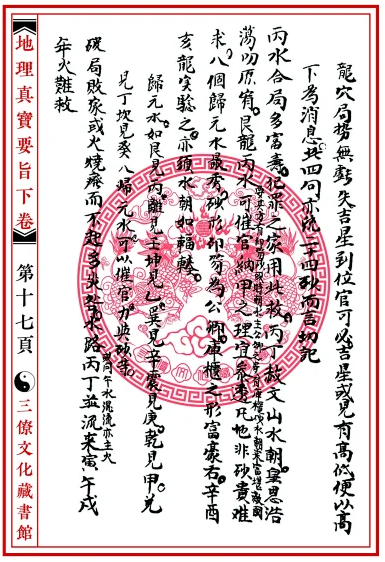 龍穴局勢無虧失吉星到位官可必吉星或見有高低便以高
下為消息此四句亦統二十四砂而言切記
丙水合局多富壽犯罪之家用此赦丙丁赦文山水朝皇恩浩
蕩的原宥艮龍丙水可催官納甲之理宜參透凡地非砂貴難
求八個歸元水最秀砂形印笏為公卿庫櫃之形富豪右辛酉
亥龍實驗之亦須水朝如輻轃
歸元水如艮見丙離見壬坤見乙巽見辛震見庚乾見甲兌
見丁坎見癸八歸元水可以催官力與砂等
午水混流亦主火
破局敗家或火燒瘡而不起多火咎水路丙丁並流來寅午戌
年火難救
地理真寶要旨下卷
第十七頁
三僚文化藏書館